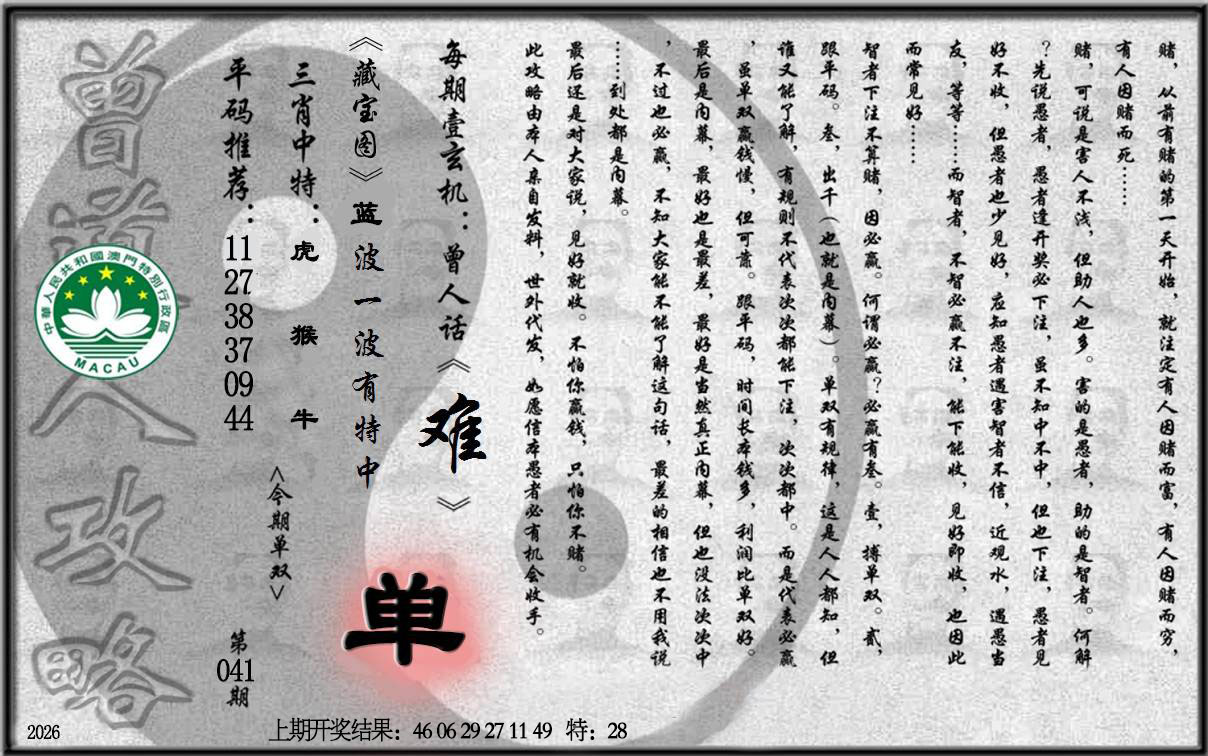 赌，从前有赌的第一天开始，就注定有人因赌而富，有人因赌而穷，
有人因赌而死……
赌，可说是害人不浅，但助人也多。害的是愚者，助的是智者。何解
？先说愚者，愚者逢开奖必下注，虽不知中不中，但也下注，愚者见
好不收，但愚者也少见好，应知愚者遇害智者不信，近观水，遇愚当
友，等等……而智者，不智必赢不注，能下能收，见好即收，也因此
而常见好……
智者下注不算赌，因必赢。何谓必赢？必赢有叁。壹，搏单双。贰，
跟平码。叁，出千（也就是内幕）。单双有规律，这是人人都知，但
谁又能了解，有规则不代表次次都能下注，次次都中。而是代表必赢
，虽单双赢钱慢，但可靠。跟平码，时间长本钱多，利润比单双好。
最后是内幕，最好也是最差，最好是当然真正内幕，但也没法次次中
，不过也必赢，不知大家能不能了解这句话，最差的相信也不用我说
……到处都是内幕。
最后还是对大家说，见好就收。不怕你赢钱，只怕你不赌。
此攻略由本人亲自发料，世外代发，如愿信本愚者必有机会收手。
每期壹玄机：曾人话《难》
《藏宝图》蓝波一波有特中
单
三肖中特：虎猴牛
<今期单双>
平码推荐：11 27 38 37 09 44
第041期
曾道人攻略
中華人民共和國澳門特別行政區
MACAU
2026
上期开奖结果：46 06 29 27 11 49 特：28